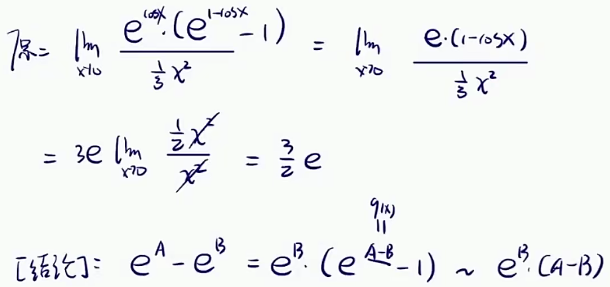 原= lim x→0 e^{cosx}·(e^{1-cosx}-1) / (1/3 x²) = lim x→0 e·(1-cosx) / (1/3 x²)
= 3e lim x→0 (1/2 x²) / x² = 3/2 e
g(x)
||
[结论]: e^A - e^B = e^B·(e^{A-B}-1) ~ e^B·(A-B)